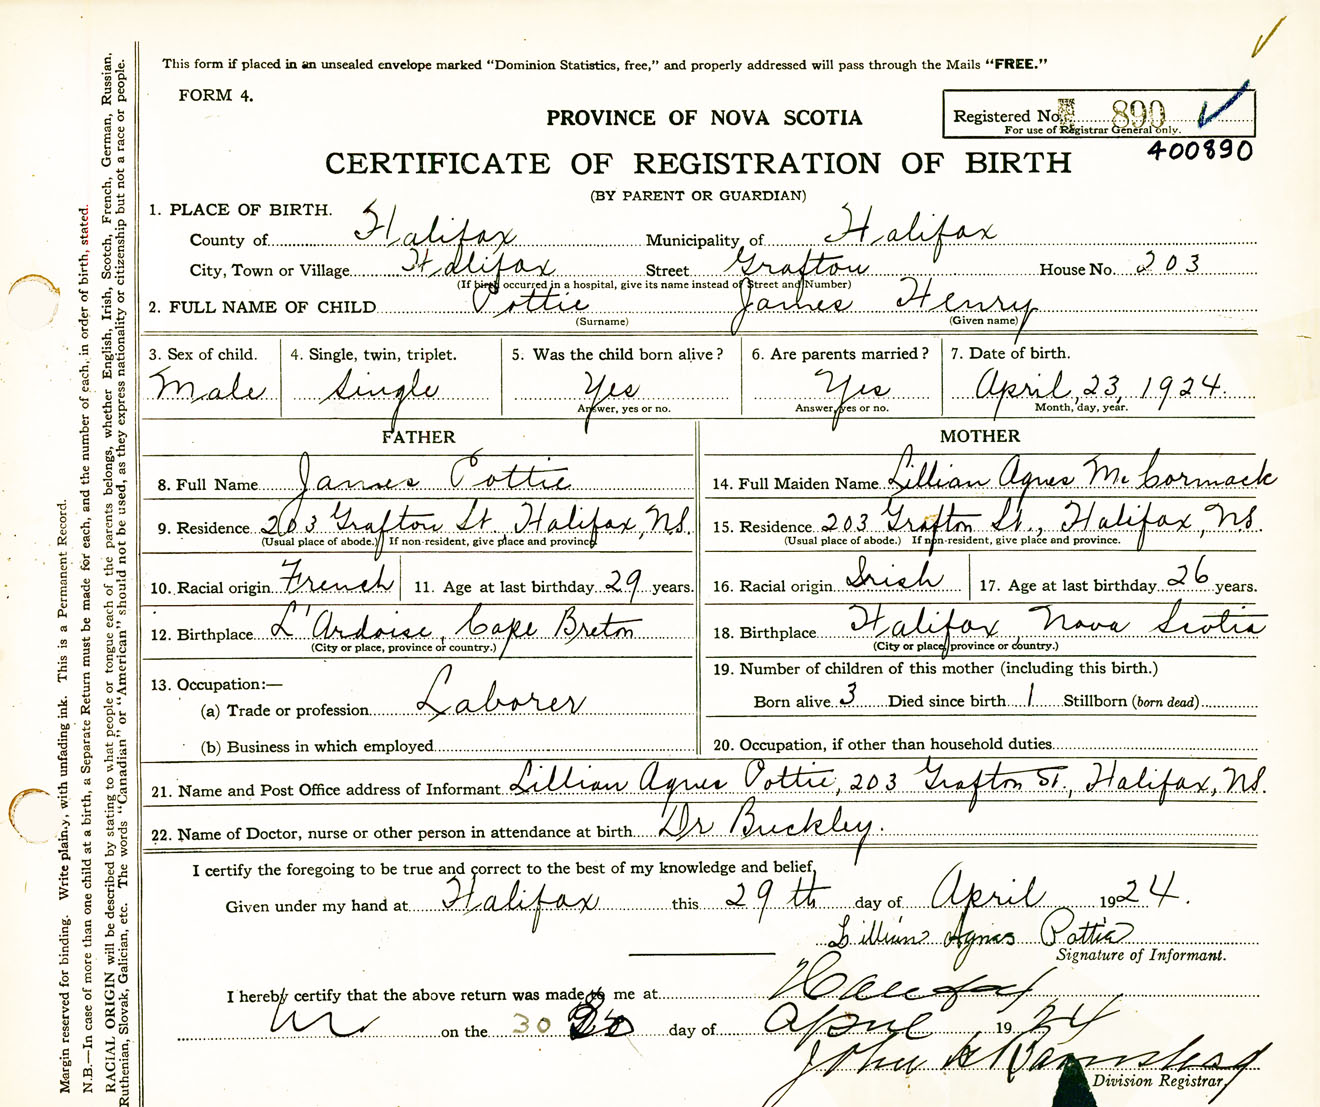 This form if placed in an unsealed envelope marked "Dominion Statistics, free," and properly addressed will pass through the Mails "FREE."
FORM 4.
PROVINCE OF NOVA SCOTIA
Registered No. 890
For use of Registrar General only.
400890
CERTIFICATE OF REGISTRATION OF BIRTH
(BY PARENT OR GUARDIAN)
1. PLACE OF BIRTH.
County of Halifax Municipality of Halifax
City, Town or Village Halifax Street Grafton House No. 203
(If birth occurred in a hospital, give its name instead of Street and Number)
2. FULL NAME OF CHILD Pottie James Henry
(Surname) (Given name)
3. Sex of child. 4. Single, twin, triplet. 5. Was the child born alive? 6. Are parents married? 7. Date of birth.
Male Single Yes Yes April, 23, 1924.
Answer, yes or no. Answer, yes or no. Month, day, year.
FATHER MOTHER
8. Full Name James Pottie 14. Full Maiden Name Lillian Agnes McCormack
9. Residence 203 Grafton St. Halifax, N.S. 15. Residence 203 Grafton St., Halifax, N.S.
(Usual place of abode.) If non-resident, give place and province. (Usual place of abode.) If non-resident, give place and province.
10. Racial origin French 11. Age at last birthday 29 years. 16. Racial origin Irish 17. Age at last birthday 26 years.
12. Birthplace L'Ardoise, Cape Breton 18. Birthplace Halifax, Nova Scotia
(City or place, province or country.) (City or place, province or country.)
13. Occupation:— 19. Number of children of this mother (including this birth.)
(a) Trade or profession Laborer Born alive 3 Died since birth 1 Stillborn (born dead)
(b) Business in which employed 20. Occupation, if other than household duties
21. Name and Post Office address of Informant Lillian Agnes Pottie, 203 Grafton St., Halifax, N.S.
22. Name of Doctor, nurse or other person in attendance at birth Dr Buckley.
I certify the foregoing to be true and correct to the best of my knowledge and belief,
Given under my hand at Halifax this 29th day of April 1924.
Lillian Agnes Pottie
Signature of Informant.
I hereby certify that the above return was made to me at Halifax
on the 30 day of April 1924
John
Division Registrar,
Margin reserved for binding. Write plainly, with unfading ink. This is a Permanent Record.
N.B.—In case of more than one child at a birth, a Separate Return must be made for each, and the number of each, in order of birth, stated.
RACIAL ORIGIN will be described by stating to what people or tongue each of the parents belongs, whether English, Irish, Scotch, French, German, Russian,
Ruthenian, Slovak, Galician, etc. The words "Canadian" or "American" should not be used, as they express nationality or citizenship but not a race or people.